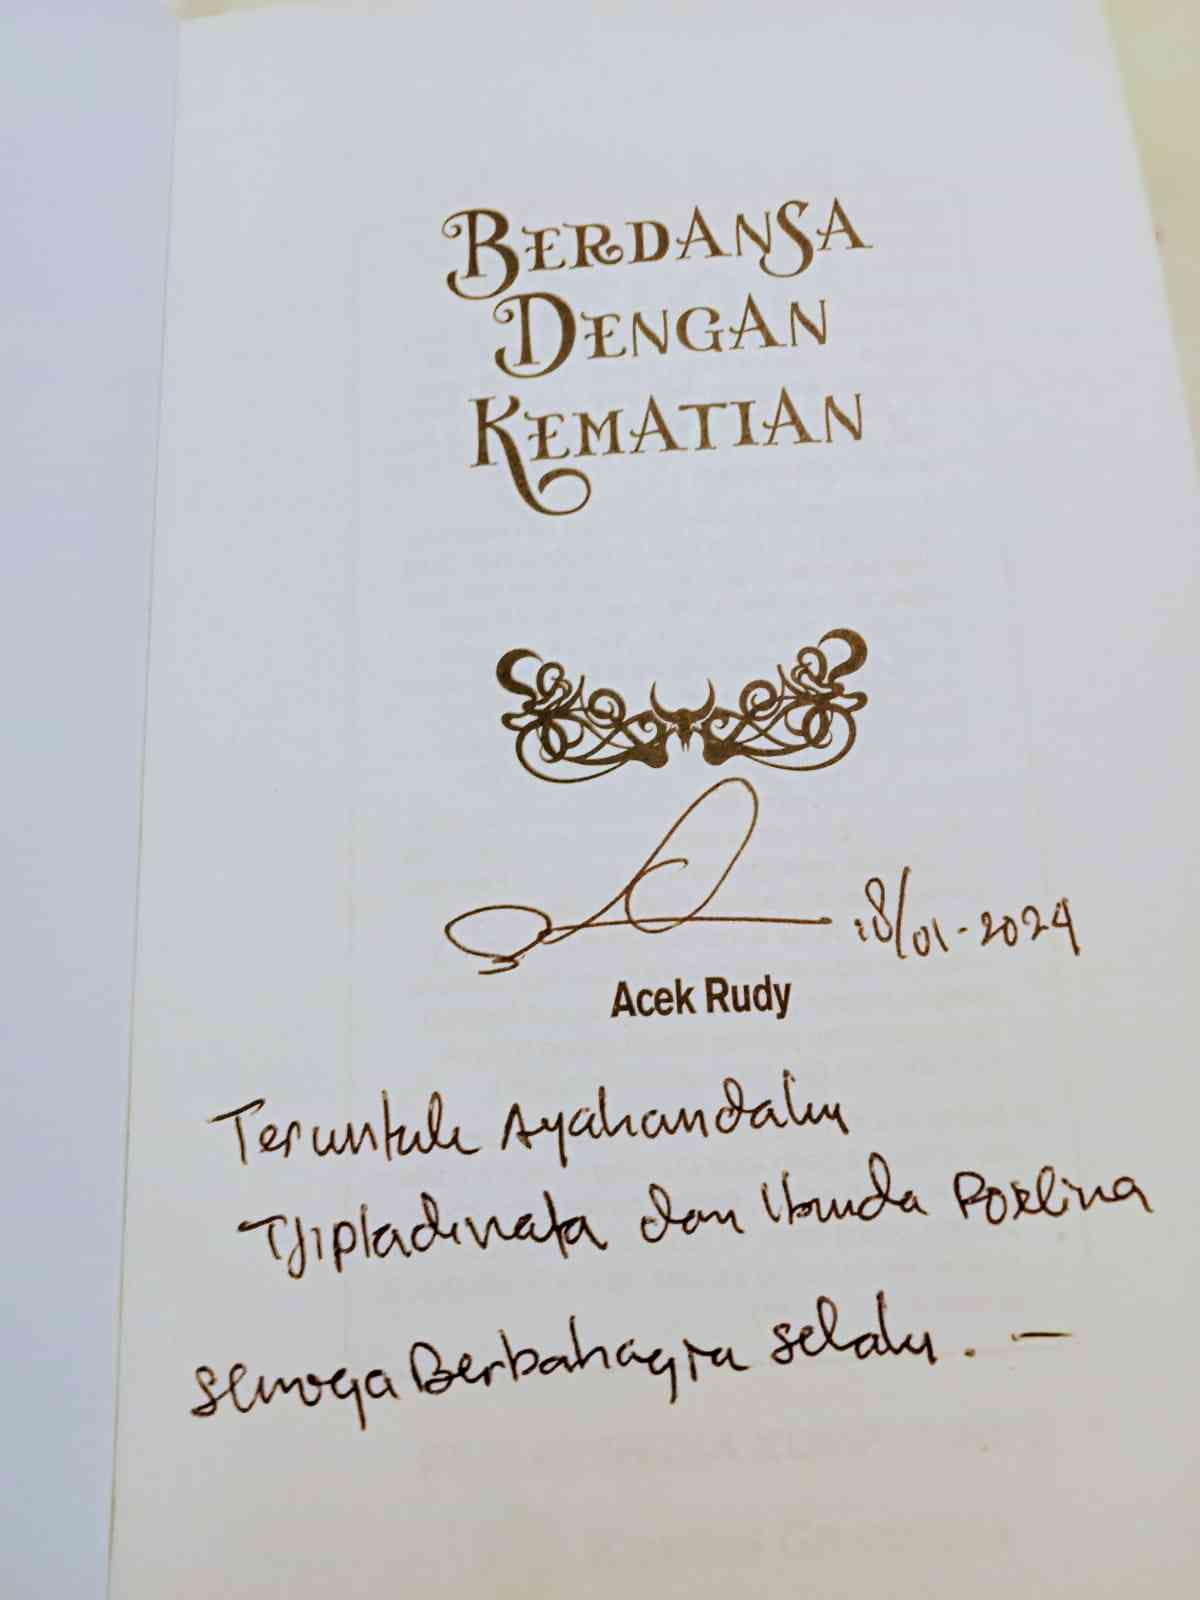 BERDANSA
DENGAN
KEMATIAN
18/01-2024
Acek Rudy
Teruntuk Ayahandaku
Tjiptadinata dan Ibunda Roslina
semoga Berbahagia selalu. —